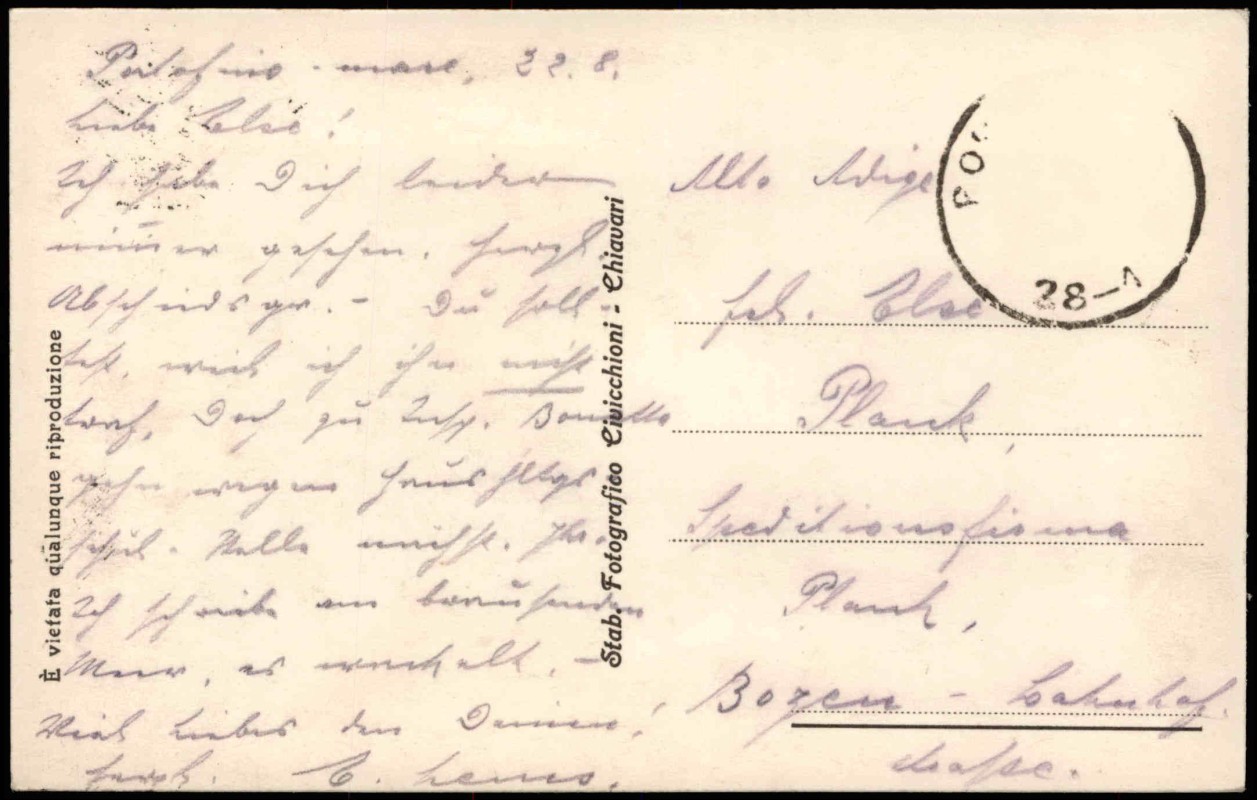 Portofino-mare, 22.8.
Liebe Else!
Ich habe Dich leider
nimmer gesehen. Herzl.
Abschiedsgr. - Du soll
test, weil ich ihn nicht
traf, Doch zu Insp.
gehn wegen
Stelle nächst. Jhr.
Ich schreibe am brausenden
Meer, es wackelt. -
Viel Liebes den Deinen!
herzl. E.
È vietata qualunque riproduzione
Stab. Fotografico Civicchioni - Chiavari
Alto Adige
28-1
Frl. Else
Plank,
Speditionsfirma
Plank,
Bozen - Bahnhof
strasse.